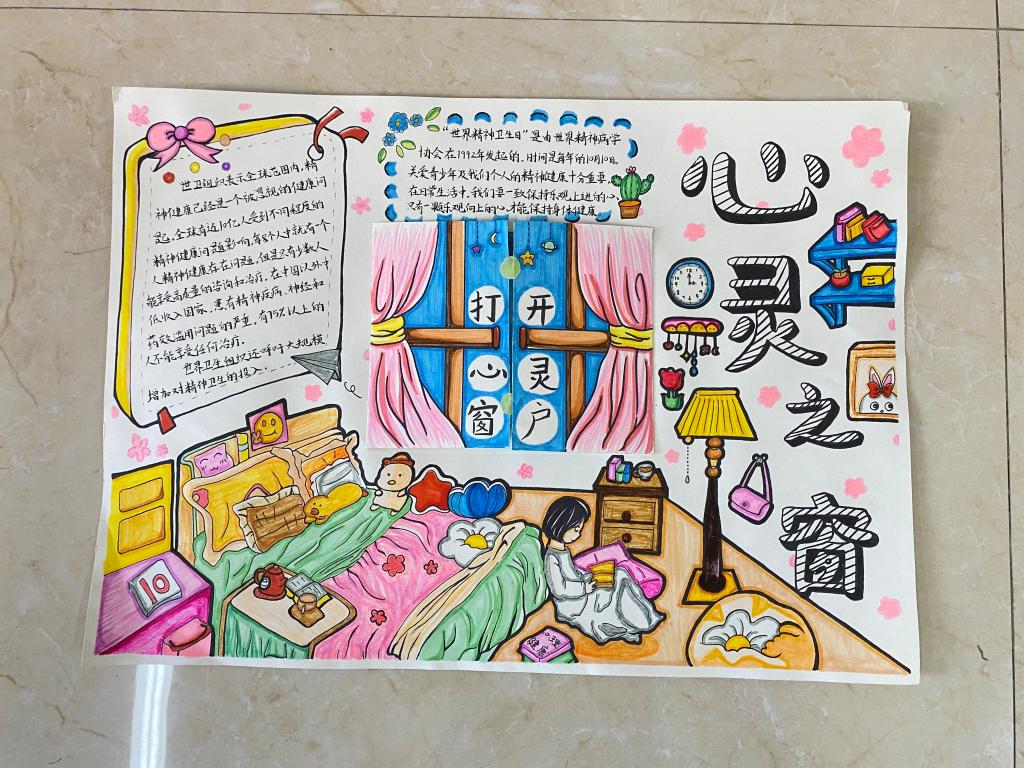 世卫组织表示全球范围内,精
神健康已经是一个被忽视的健康问
题,全球有近10亿人受到不同程度的
精神健康问题影响,每8个人中就有一个
人精神健康存在问题,但是只有少数人
能享受高质量的咨询和治疗,在中国以外中
低收入国家,患有精神疾病、神经和
药效滥用问题的严重,有75%以上的
人不能享受任何治疗.
世界卫生组织还呼吁大规模
增加对精神卫生的投入
“世界精神卫生日”是由世界精神病学
协会在1992年发起的,时间是每年的10月10日。
关爱青少年及我们个人的精神健康十分重要,
在日常生活中,我们要一致保持乐观上进的心,
只有一颗乐观向上的心,才能保持身体健康.
打开
心灵
窗户
心灵之窗
10
心理
健康